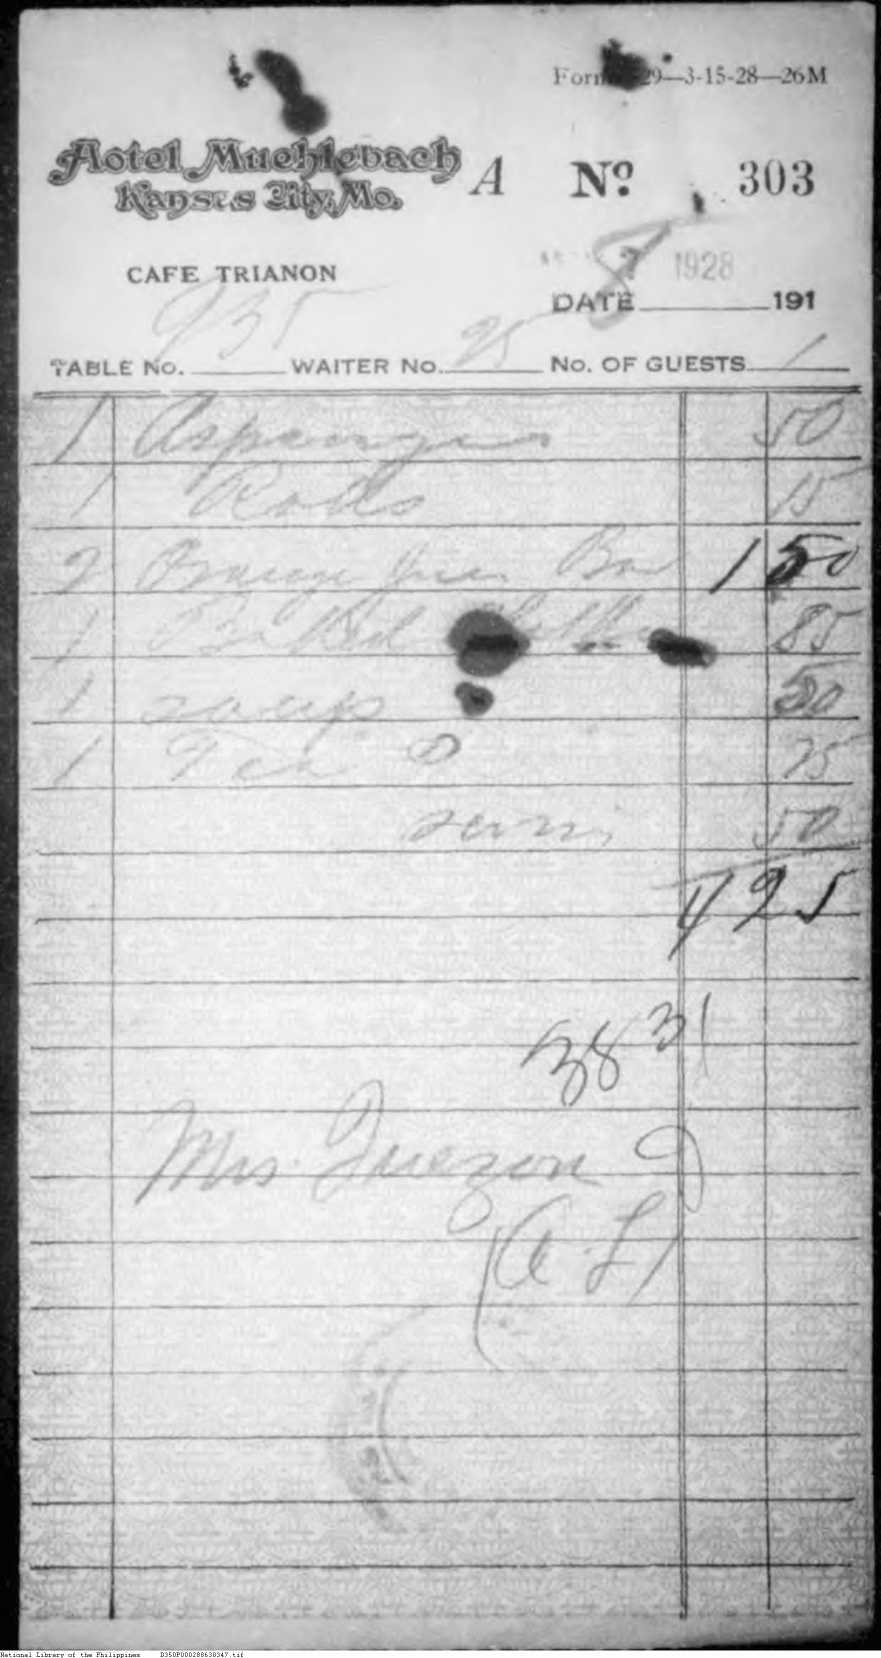 Form 29—3-15-28—26M
Hotel Muehlebach
Kansas City, Mo.
A No 303
CAFE TRIANON
7 1928
8
DATE 191
TABLE No. 935 WAITER No. 25 No. OF GUESTS 1
1 Asparagus 50
1 Rolls 15
2 Orange Juice 1 50
1 Baked 85
1 soup 50
1 Tea 25
50
4 25
3831
Mrs. Quezon
(A. L)
National Library of the Philippines D350P000288630347.tif